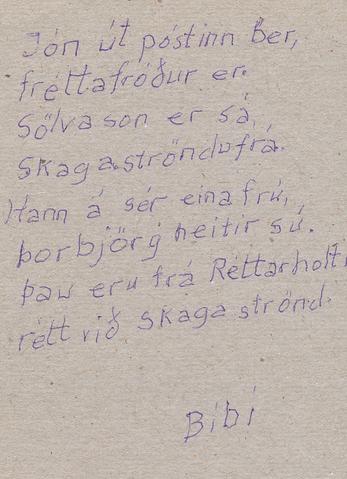 Jón út póstinn Ber,
fréttafróður er.
Sölvason er sá,
Skagaströndu frá.
Hann á sér eina frú,
Þorbjörg heitir sú.
Þau eru frá Réttarholti
rétt við Skagaströnd.
Bíbí